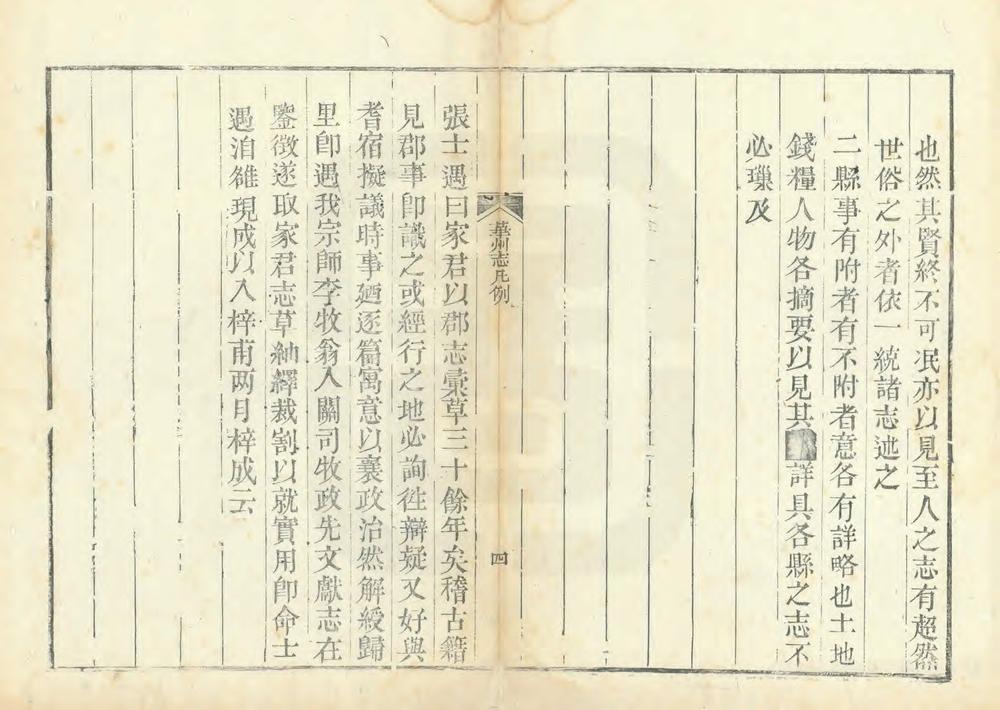 也然其賢終不可泯亦以見至人之志有超然
世俗之外者依一統諸志述之
二縣事有附者有不附者意各有詳略也土地
錢糧人物各摘要以見其詳具各縣之志不
必璅及
華州志凡例
四
張士遇曰家君以郡志稾草三十餘年矣稽古籍
見郡事卽識之或經行之地必詢徃辯疑又好與
耆宿擬議時事廼逐篇寓意以襄政治然解綬歸
里卽遇我宗師李牧翁入關司牧政先文獻志在
鑒徴遂取家君志草紬繹裁割以就實用卽命士
遇洎雒現成以入梓甫两月梓成云